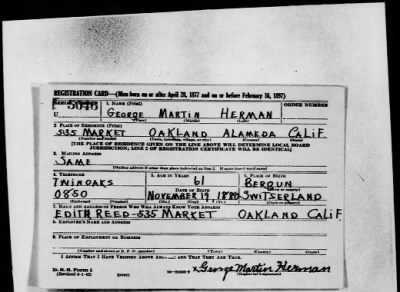 REGISTRATION CARD—(Men born on or after April 28, 1877 and on or before February 16, 1897)
SERIAL 1. NAME (Print) ORDER NUMBER
U 5046 GEORGE MARTIN HERMAN
(First) (Middle) (Last)
2. PLACE OF RESIDENCE (Print)
535 MARKET OAKLAND ALAMEDA CALIF.
(Number and street) (Town, township, village, or city) (County) (State)
[THE PLACE OF RESIDENCE GIVEN ON THE LINE ABOVE WILL DETERMINE LOCAL BOARD
JURISDICTION; LINE 2 OF REGISTRATION CERTIFICATE WILL BE IDENTICAL]
3. MAILING ADDRESS
SAME
[Mailing address if other than place indicated on line 2. If same insert word same]
4. TELEPHONE 5. AGE IN YEARS 6. PLACE OF BIRTH
TWINOAKS 61 BERGUN
DATE OF BIRTH
0850 NOVEMBER 19, 1880 SWITZERLAND
7. NAME AND ADDRESS OF PERSON WHO WILL ALWAYS KNOW YOUR ADDRESS
EDITH REED-535 MARKET OAKLAND CALIF.
8. EMPLOYER'S NAME AND ADDRESS
9. PLACE OF EMPLOYMENT OR BUSINESS
(Number and street or R. F. D. number) (Town) (County) (State)
I AFFIRM THAT I HAVE VERIFIED ABOVE ANSWERS AND THAT THEY ARE TRUE.
D. S. S. Form 1
(Revised 4-1-42) x George Martin Herman
(Registrant's signature)